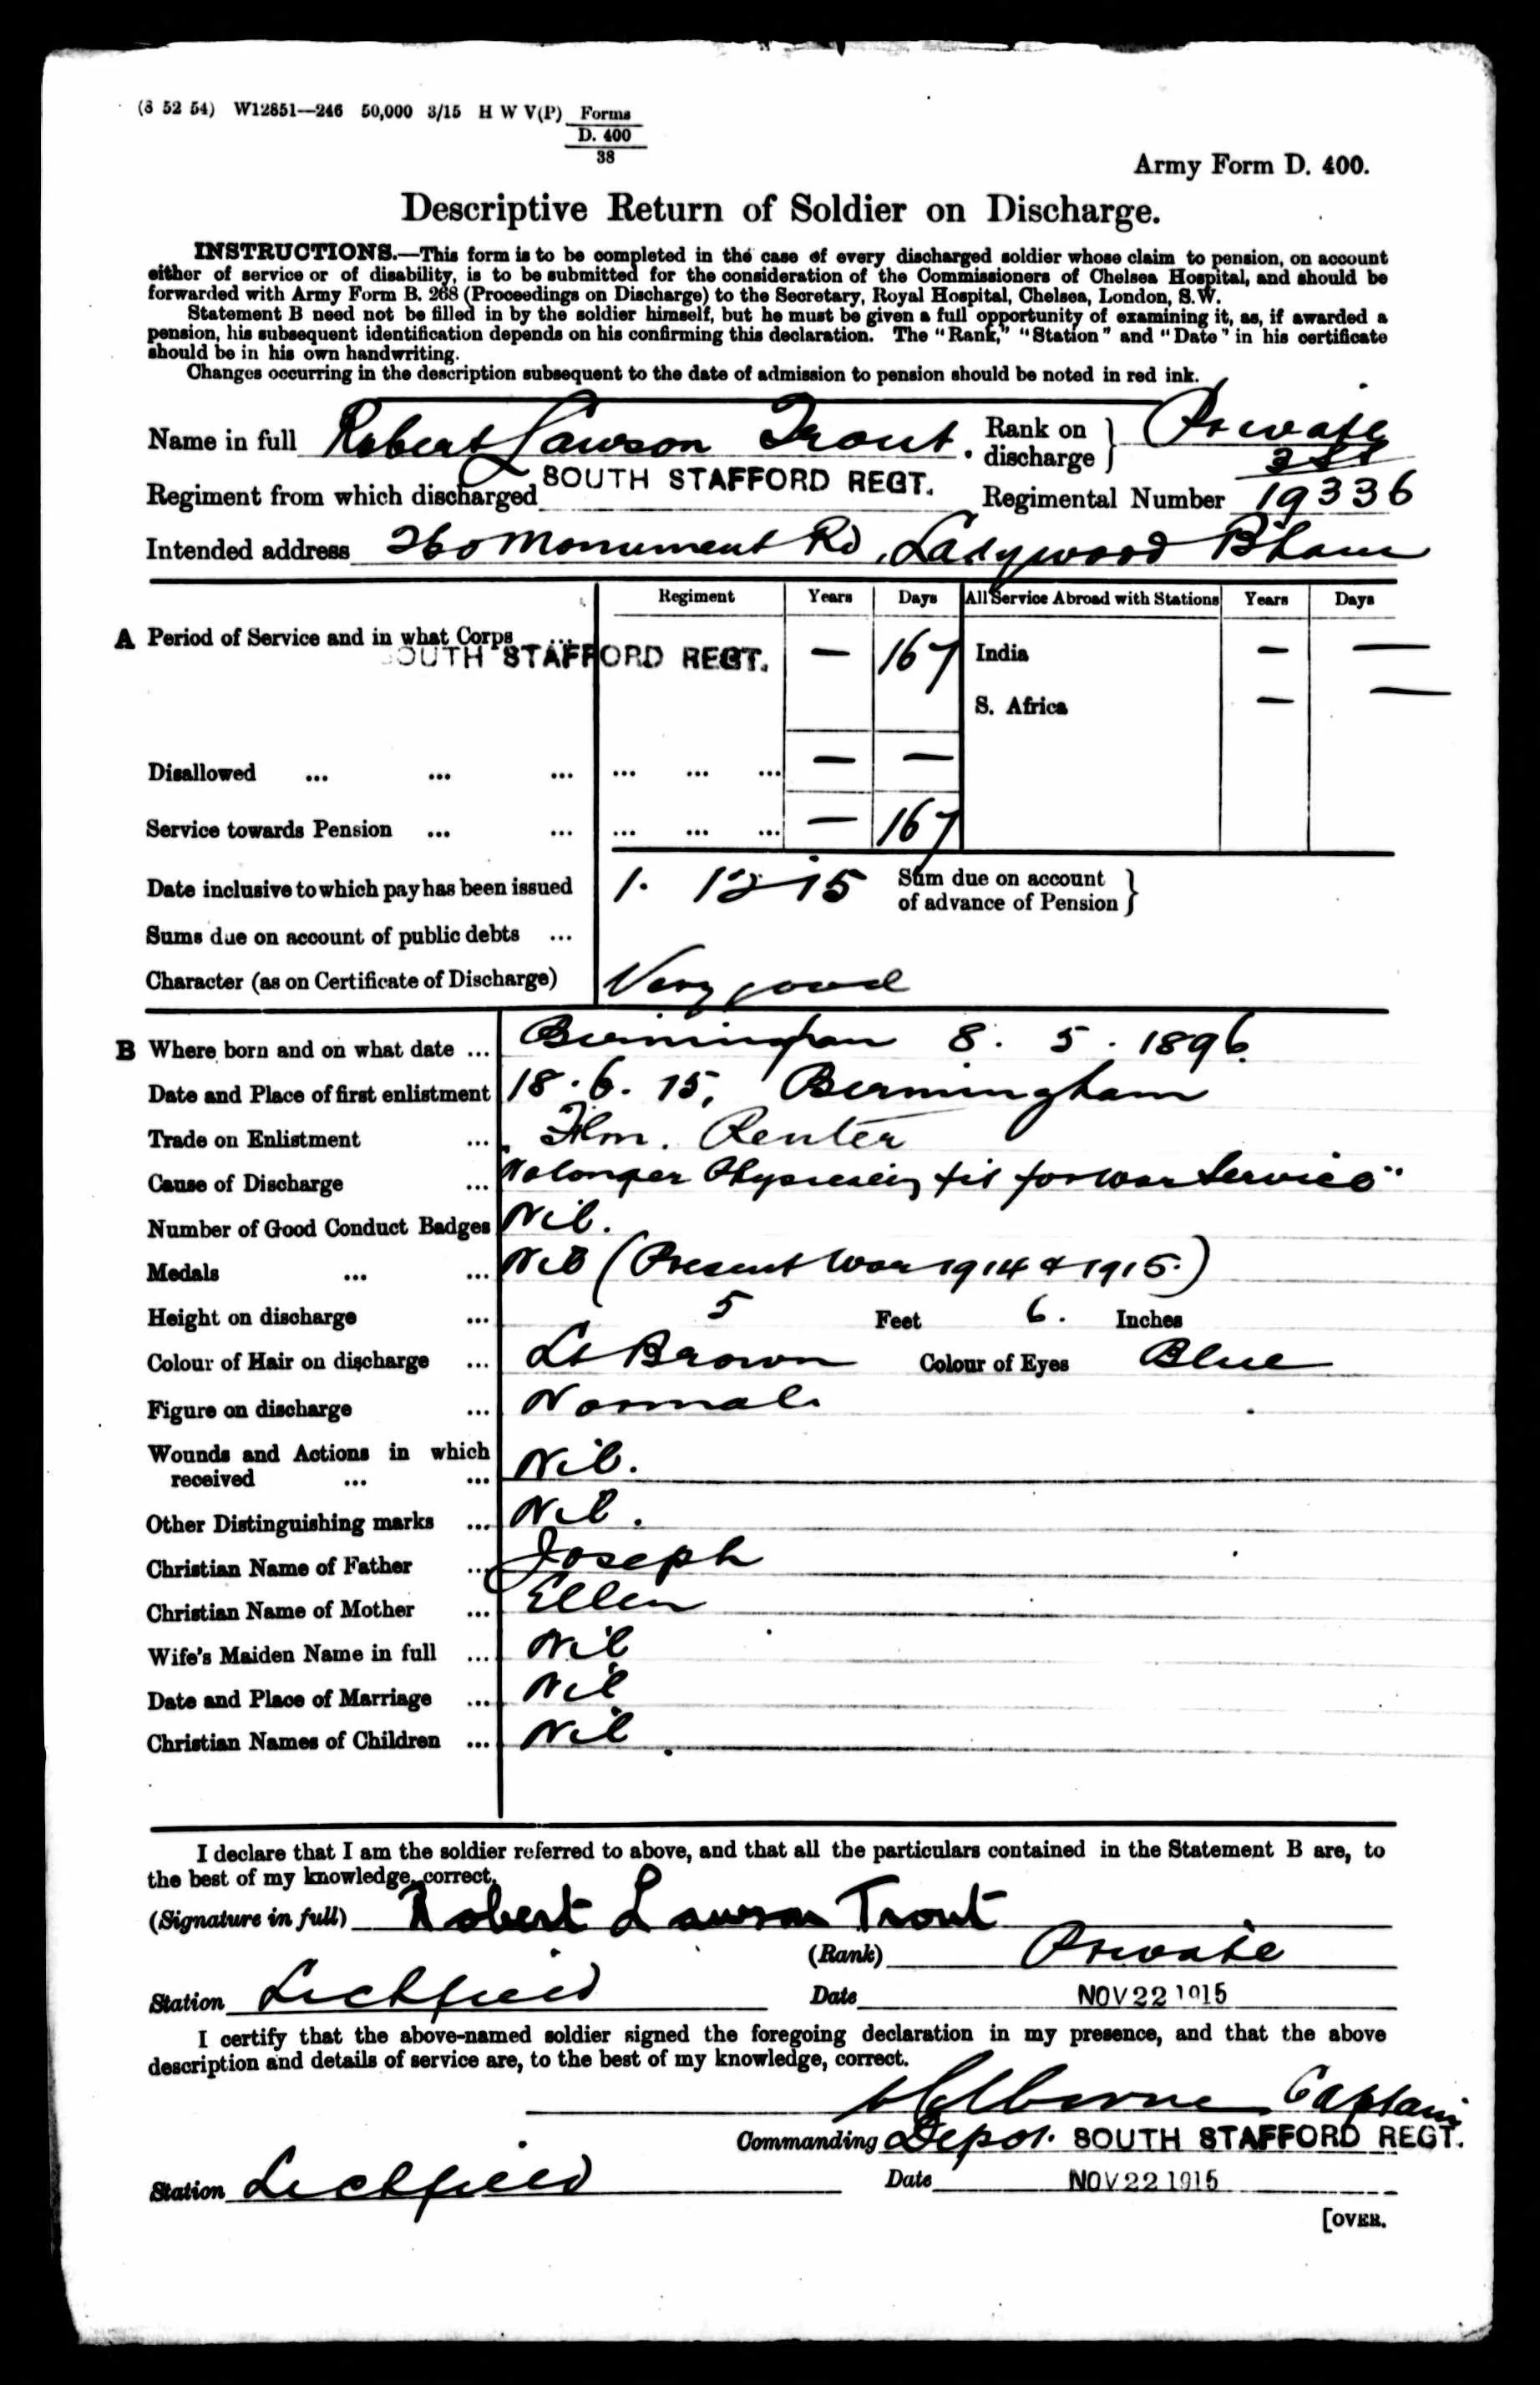 (8 52 54) W12851—246 50,000 3/15 H W V(P) Forms
D. 400
38
Army Form D. 400.
Descriptive Return of Soldier on Discharge.
INSTRUCTIONS.—This form is to be completed in the case of every discharged soldier whose claim to pension, on account
either of service or of disability, is to be submitted for the consideration of the Commissioners of Chelsea Hospital, and should be
forwarded with Army Form B. 268 (Proceedings on Discharge) to the Secretary, Royal Hospital, Chelsea, London, S.W.
Statement B need not be filled in by the soldier himself, but he must be given a full opportunity of examining it, as, if awarded a
pension, his subsequent identification depends on his confirming this declaration. The "Rank," "Station" and "Date" in his certificate
should be in his own handwriting.
Changes occurring in the description subsequent to the date of admission to pension should be noted in red ink.
Name in full Robert Lawson Trout. Rank on discharge } Private
Regiment from which discharged SOUTH STAFFORD REGT. Regimental Number 19336
Intended address 260 Monument Rd, Ladywood B'ham
Regiment Years Days All Service Abroad with Stations Years Days
A Period of Service and in what Corps ... SOUTH STAFFORD REGT. — 167 India — —
S. Africa — —
Disallowed ... ... ... ... ... ... — —
Service towards Pension ... ... ... ... ... — 167
Date inclusive to which pay has been issued 1. 12 15 Sum due on account of advance of Pension }
Sums due on account of public debts ...
Character (as on Certificate of Discharge) Very good
B Where born and on what date ... Birmingham 8. 5. 1896
Date and Place of first enlistment 18. 6. 15, Birmingham
Trade on Enlistment ... Film. Renter
Cause of Discharge ... "No longer Physically fit for war Service"
Number of Good Conduct Badges Nil.
Medals ... ... Nil (Present War 1914 & 1915.)
Height on discharge ... 5 Feet 6. Inches
Colour of Hair on discharge ... Lt Brown Colour of Eyes Blue
Figure on discharge ... Normal
Wounds and Actions in which
received ... ... Nil.
Other Distinguishing marks ... Nil.
Christian Name of Father ... Joseph
Christian Name of Mother ... Ellen
Wife's Maiden Name in full ... Nil
Date and Place of Marriage ... Nil
Christian Names of Children ... Nil.
I declare that I am the soldier referred to above, and that all the particulars contained in the Statement B are, to
the best of my knowledge, correct.
(Signature in full) Robert Lawson Trout
(Rank) Private
Station Lichfield Date NOV 22 1915
I certify that the above-named soldier signed the foregoing declaration in my presence, and that the above
description and details of service are, to the best of my knowledge, correct.
Captain
Commanding Depot. SOUTH STAFFORD REGT.
Station Lichfield Date NOV 22 1915
[OVER.